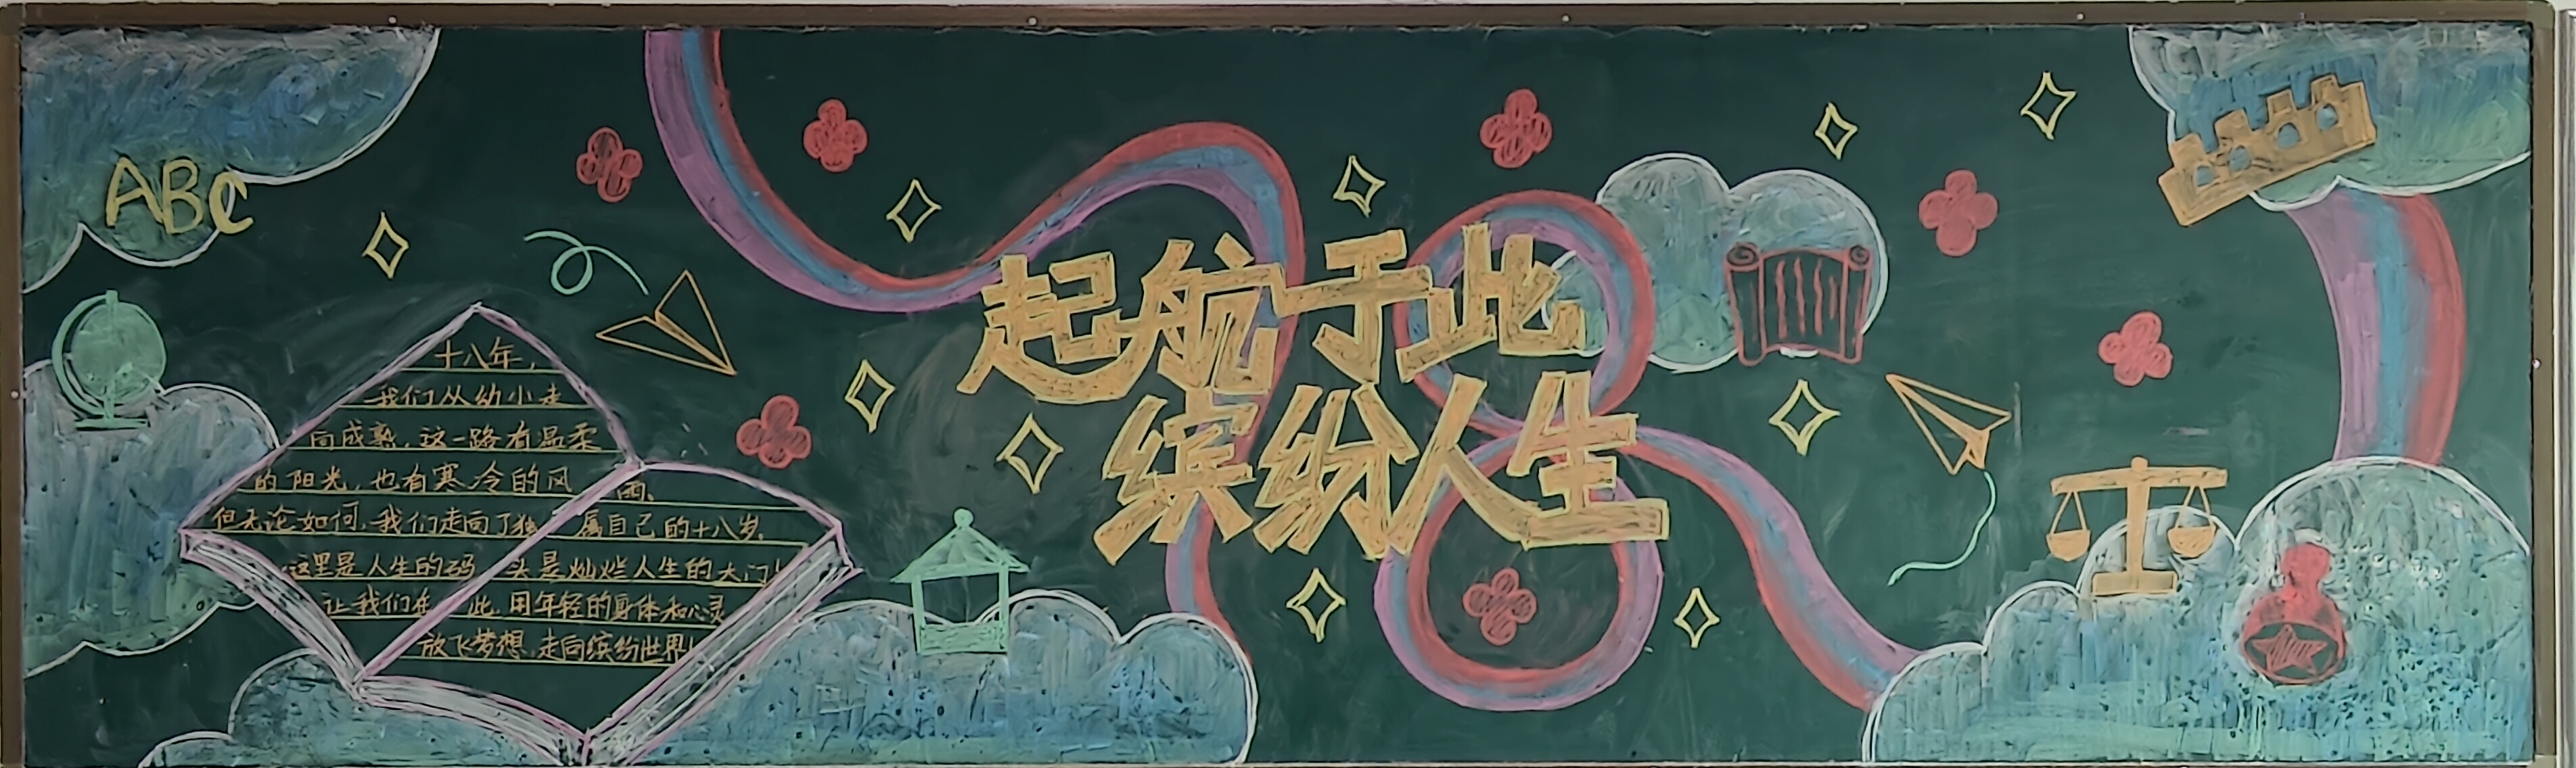 ABC
起航于此
缤纷人生
十八年，
我们从幼小走
向成熟，这一路有温柔
的阳光，也有寒冷的风雨。
但无论如何，我们走向了独属自己的十八岁。
这里是人生的码头是灿烂人生的大门！
让我们在此，用年轻的身体和心灵
放飞梦想，走向缤纷世界！